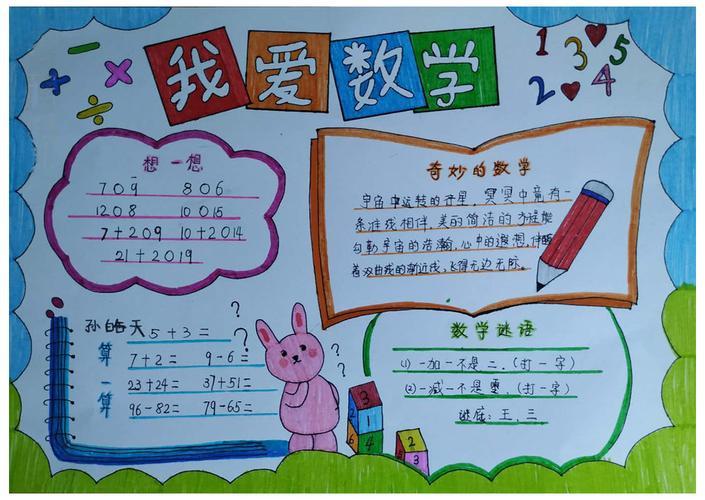 我爱数学
+ - × ÷
1 3 5
2 4
想一想
709 806
1208 10015
7+209 10+2014
21+2019
奇妙的数学
宇宙中运转的行星，冥冥中竟有一
条准线相伴，美的简洁的方程能
勾勒宇宙的浩瀚，心中的遐想，伴随
着双曲线的渐近线，飞得无边无际。
孙皓天
算一算
5+3=
7+2= 9-6=
23+24= 37+51=
96-82= 79-65=
? ? ? ?
3
1
6 4
2
1 3
数学谜语
(1) 一加一不是二．(打一字)
(2) 一减一不是零．(打一字)
谜底：王、三